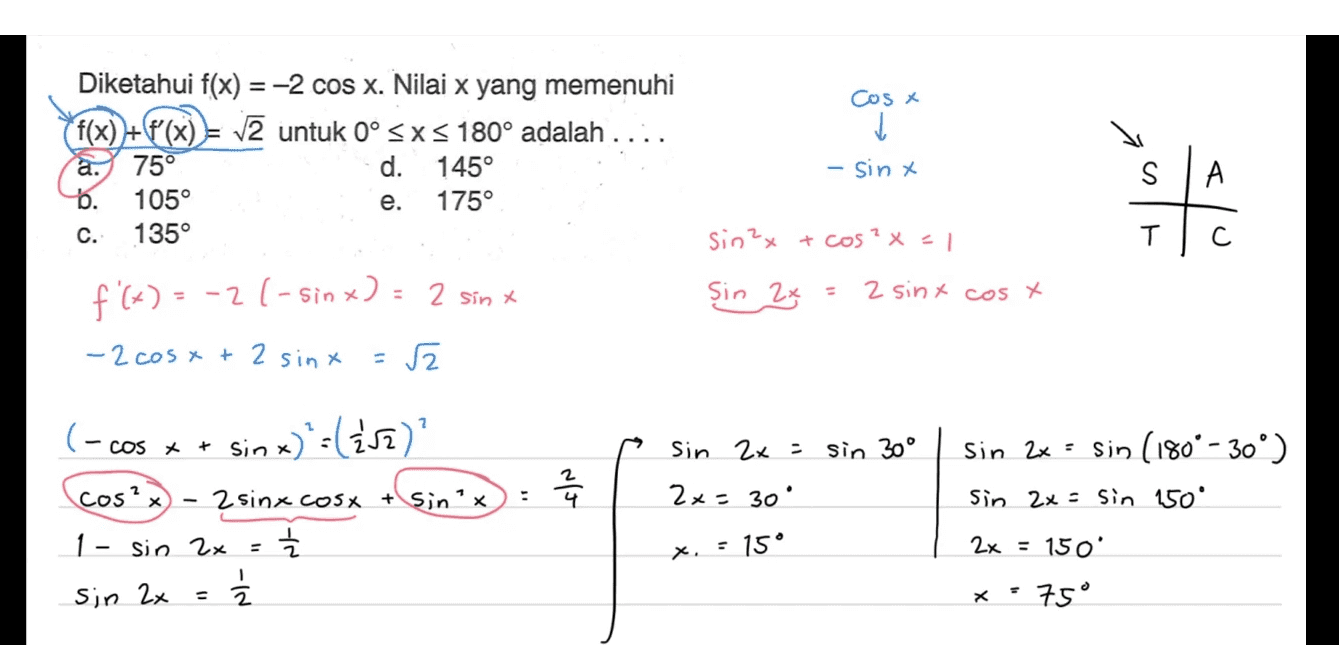 Diketahui f(x) = –2 cos x. Nilai x yang memenuhi
f(x) + f'(x) = √2 untuk 0° ≤ x ≤ 180° adalah . . . .
a. 75°
b. 105°
c. 135°
d. 145°
e. 175°
cos x
↓
- sin x
S | A
T | C
sin²x + cos²x = 1
sin 2x = 2 sin x cos x
f'(x) = -2 (-sin x) = 2 sin x
-2 cos x + 2 sin x = √2
(- cos x + sin x)² = (1/2 √2)²
cos²x - 2 sin x cos x + sin²x = 2/4
1 - sin 2x = 1/2
sin 2x = 1/2
sin 2x = sin 30°
2x = 30°
x. = 15°
sin 2x = sin (180° - 30°)
sin 2x = sin 150°
2x = 150°
x = 75°